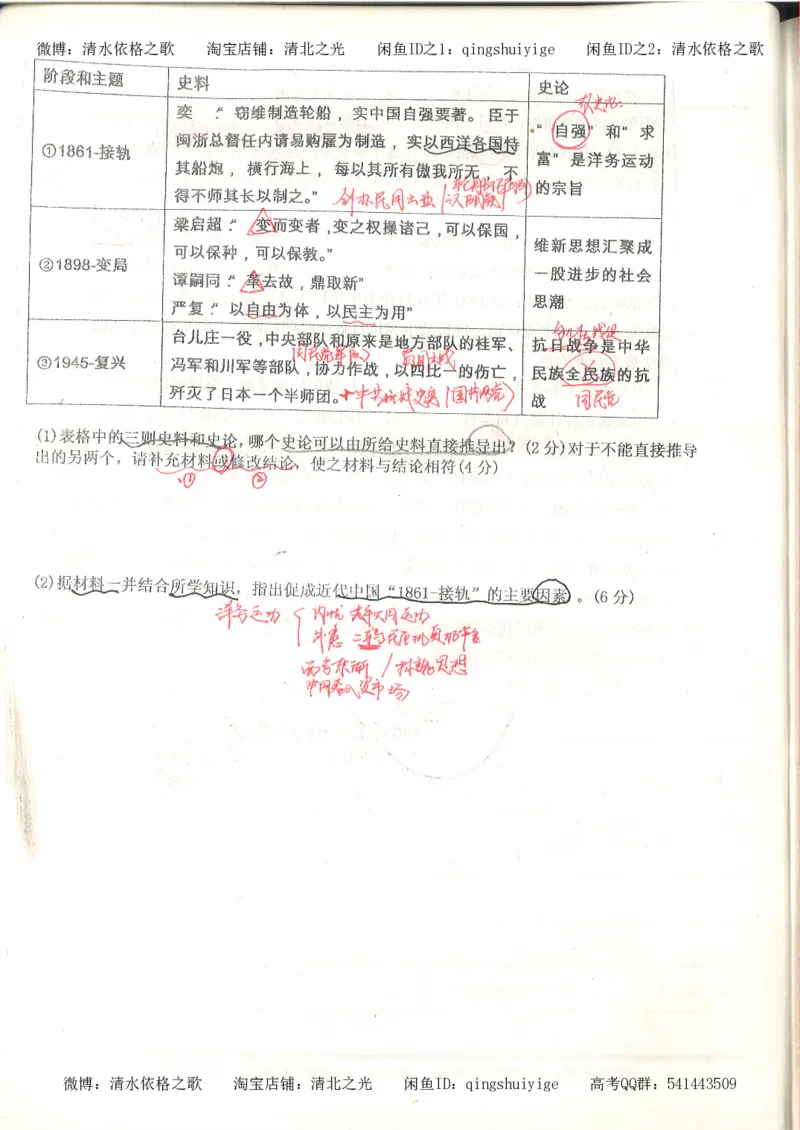 微博：清水依格之歌 淘宝店铺：清北之光 闲鱼ID之1：qingshuiyige 闲鱼ID之2：清水依格之歌
阶段和主题 史料 史论
①1861-接轨
奕 :“ 窃维制造轮船，实中国自强要著。臣于
闽浙总督任内请易购雇为制造，实以西洋各国恃
其船炮，横行海上，每以其所有傲我所无，不
得不师其长以制之。”
创办民用企业
“自强”和“求
富”是洋务运动
的宗旨
②1898-变局
梁启超:“ 变而变者,变之权操诸己,可以保国,
可以保种,可以保教。”
谭嗣同:“ 革去故,鼎取新”
严复:“ 以自由为体,以民主为用”
维新思想汇聚成
一股进步的社会
思潮
③1945-复兴
台儿庄一役,中央部队和原来是地方部队的桂军、
冯军和川军等部队,协力作战,以四比一的伤亡,
歼灭了日本一个半师团。
抗日战争是中华
民族全民族的抗
战
国民党
(1)表格中的三则史料和史论,哪个史论可以由所给史料直接推导出？(2分)对于不能直接推导
出的另两个,请补充材料或修改结论,使之材料与结论相符(4分)
① ②
(2)据材料一并结合所学知识,指出促成近代中国“1861-接轨”的主要因素。(6分)
洋务运动 内忧 太平天国运动
西学东渐
微博：清水依格之歌 淘宝店铺：清北之光 闲鱼ID：qingshuiyige 高考QQ群：541443509